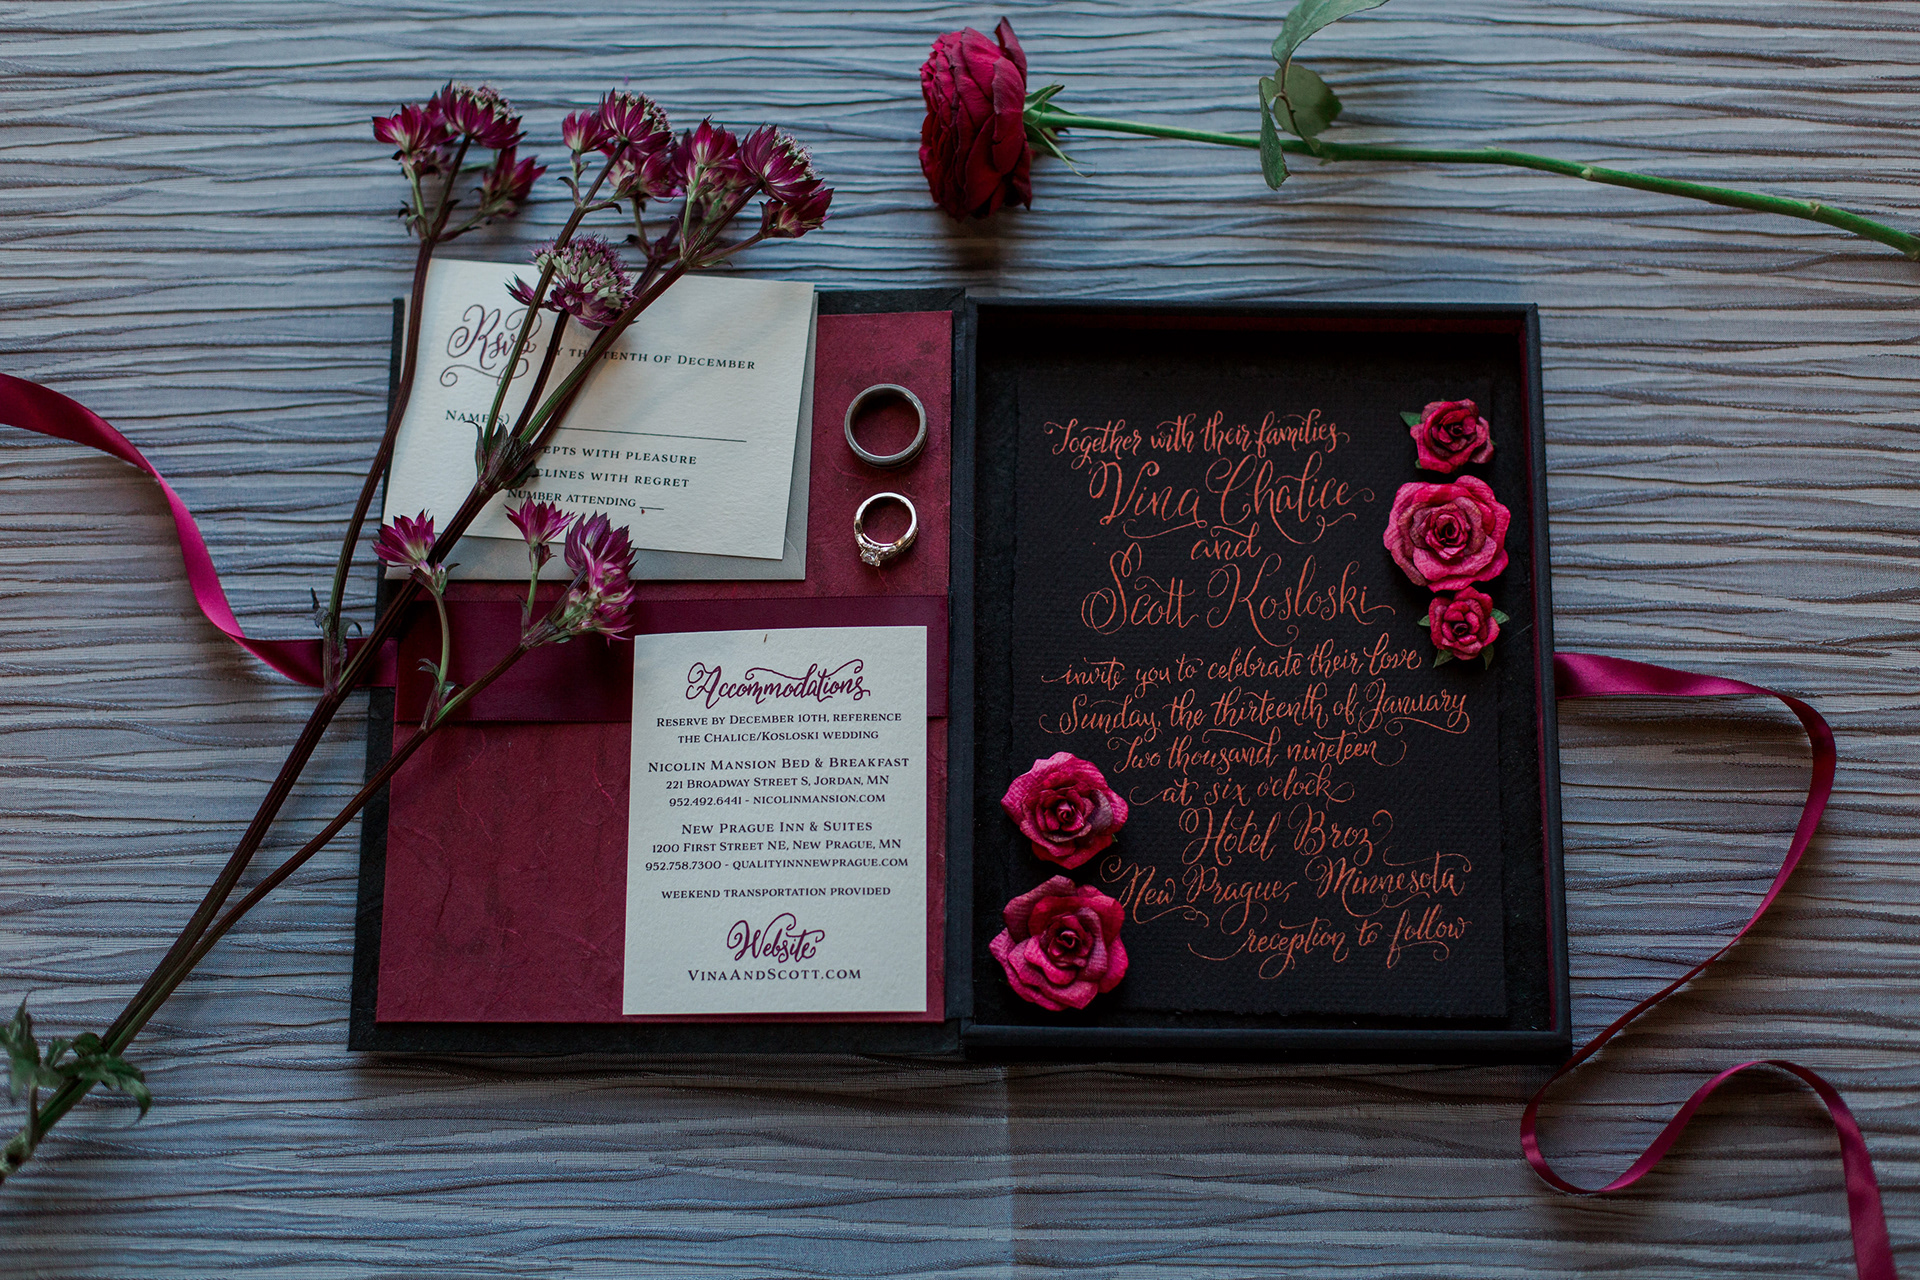 Rsvp
by the tenth of December
Name(s)
with pleasure
with regret
Number attending
Accommodations
Reserve by December 10th, reference
the Chalice/Kosloski wedding
Nicolin Mansion Bed & Breakfast
221 Broadway Street S, Jordan, MN
952.492.6441 - nicolinmansion.com
New Prague Inn & Suites
1200 First Street NE, New Prague, MN
952.758.7300 - qualityinnnewprague.com
weekend transportation provided
Website
VinaAndScott.com
Together with their families
Vina Chalice
and
Scott Kosloski
invite you to celebrate their love
Sunday, the thirteenth of January
Two thousand nineteen
at six o'clock
Hotel Broz
New Prague, Minnesota
reception to follow